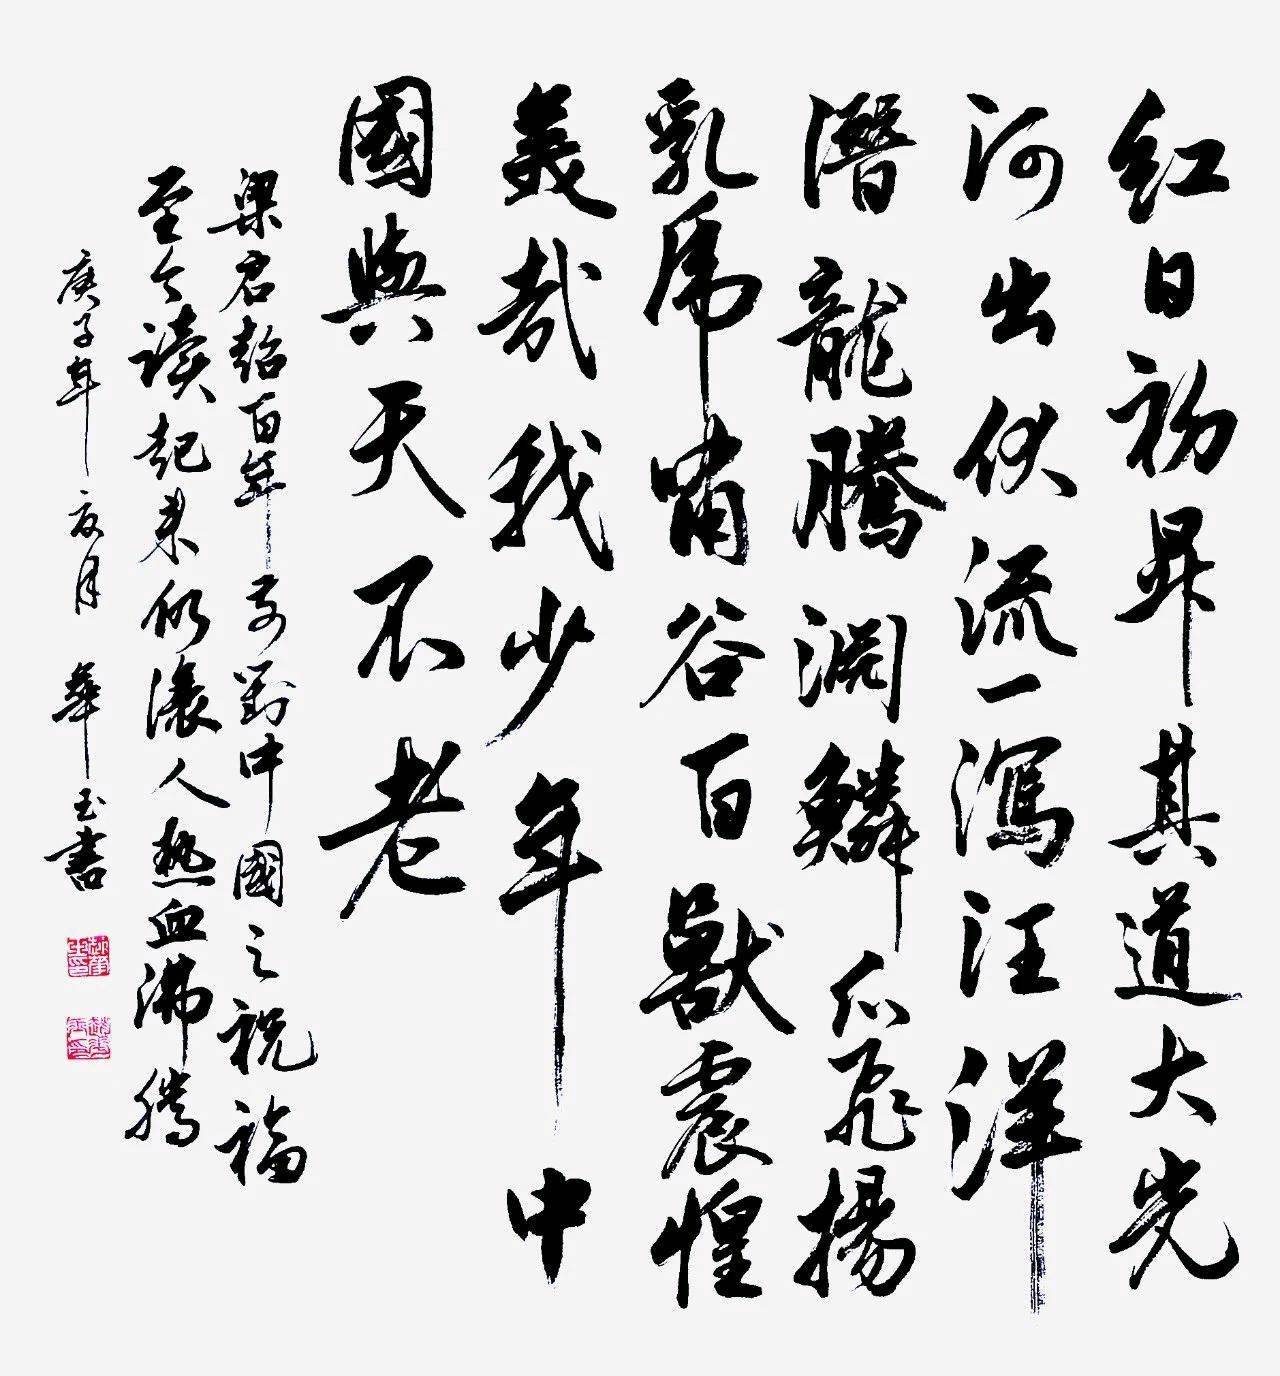 紅日初昇其道大光
河出伏流一瀉汪洋
潛龍騰淵鱗爪飛揚
乳虎嘯谷百獸震惶
美哉我少年中
國與天不老
梁君超百年前對中國之祝福
至今讀起来仍讓人熱血沸騰
庚子年夏月 華玉書